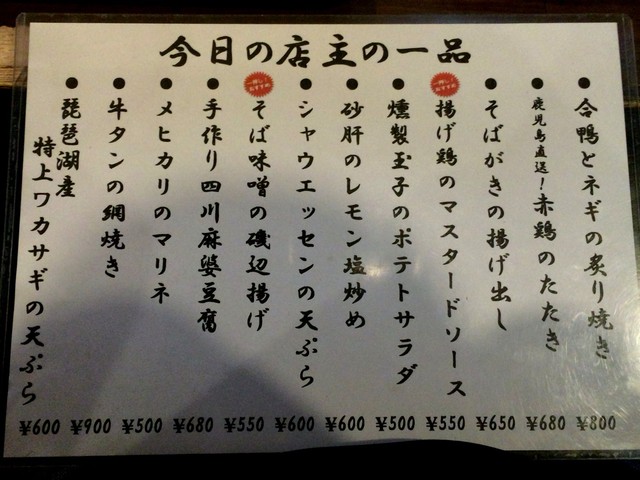 今日の店主の一品
●合鴨とネギの炙り焼き
¥800
●鹿児島直送!赤鶏のたたき
¥680
●そばがきの揚げ出し
¥650
一押し!
おすすめ
揚げ鶏のマスタードソース
¥550
●燻製玉子のポテトサラダ
¥500
●砂肝のレモン塩炒め
¥600
●シャウエッセンの天ぷら
¥600
一押し!
おすすめ
そば味噌の磯辺揚げ
¥550
●手作り四川麻婆豆腐
¥680
●メヒカリのマリネ
¥500
●牛タンの網焼き
¥900
●琵琶湖産
特上ワカサギの天ぷら
¥600